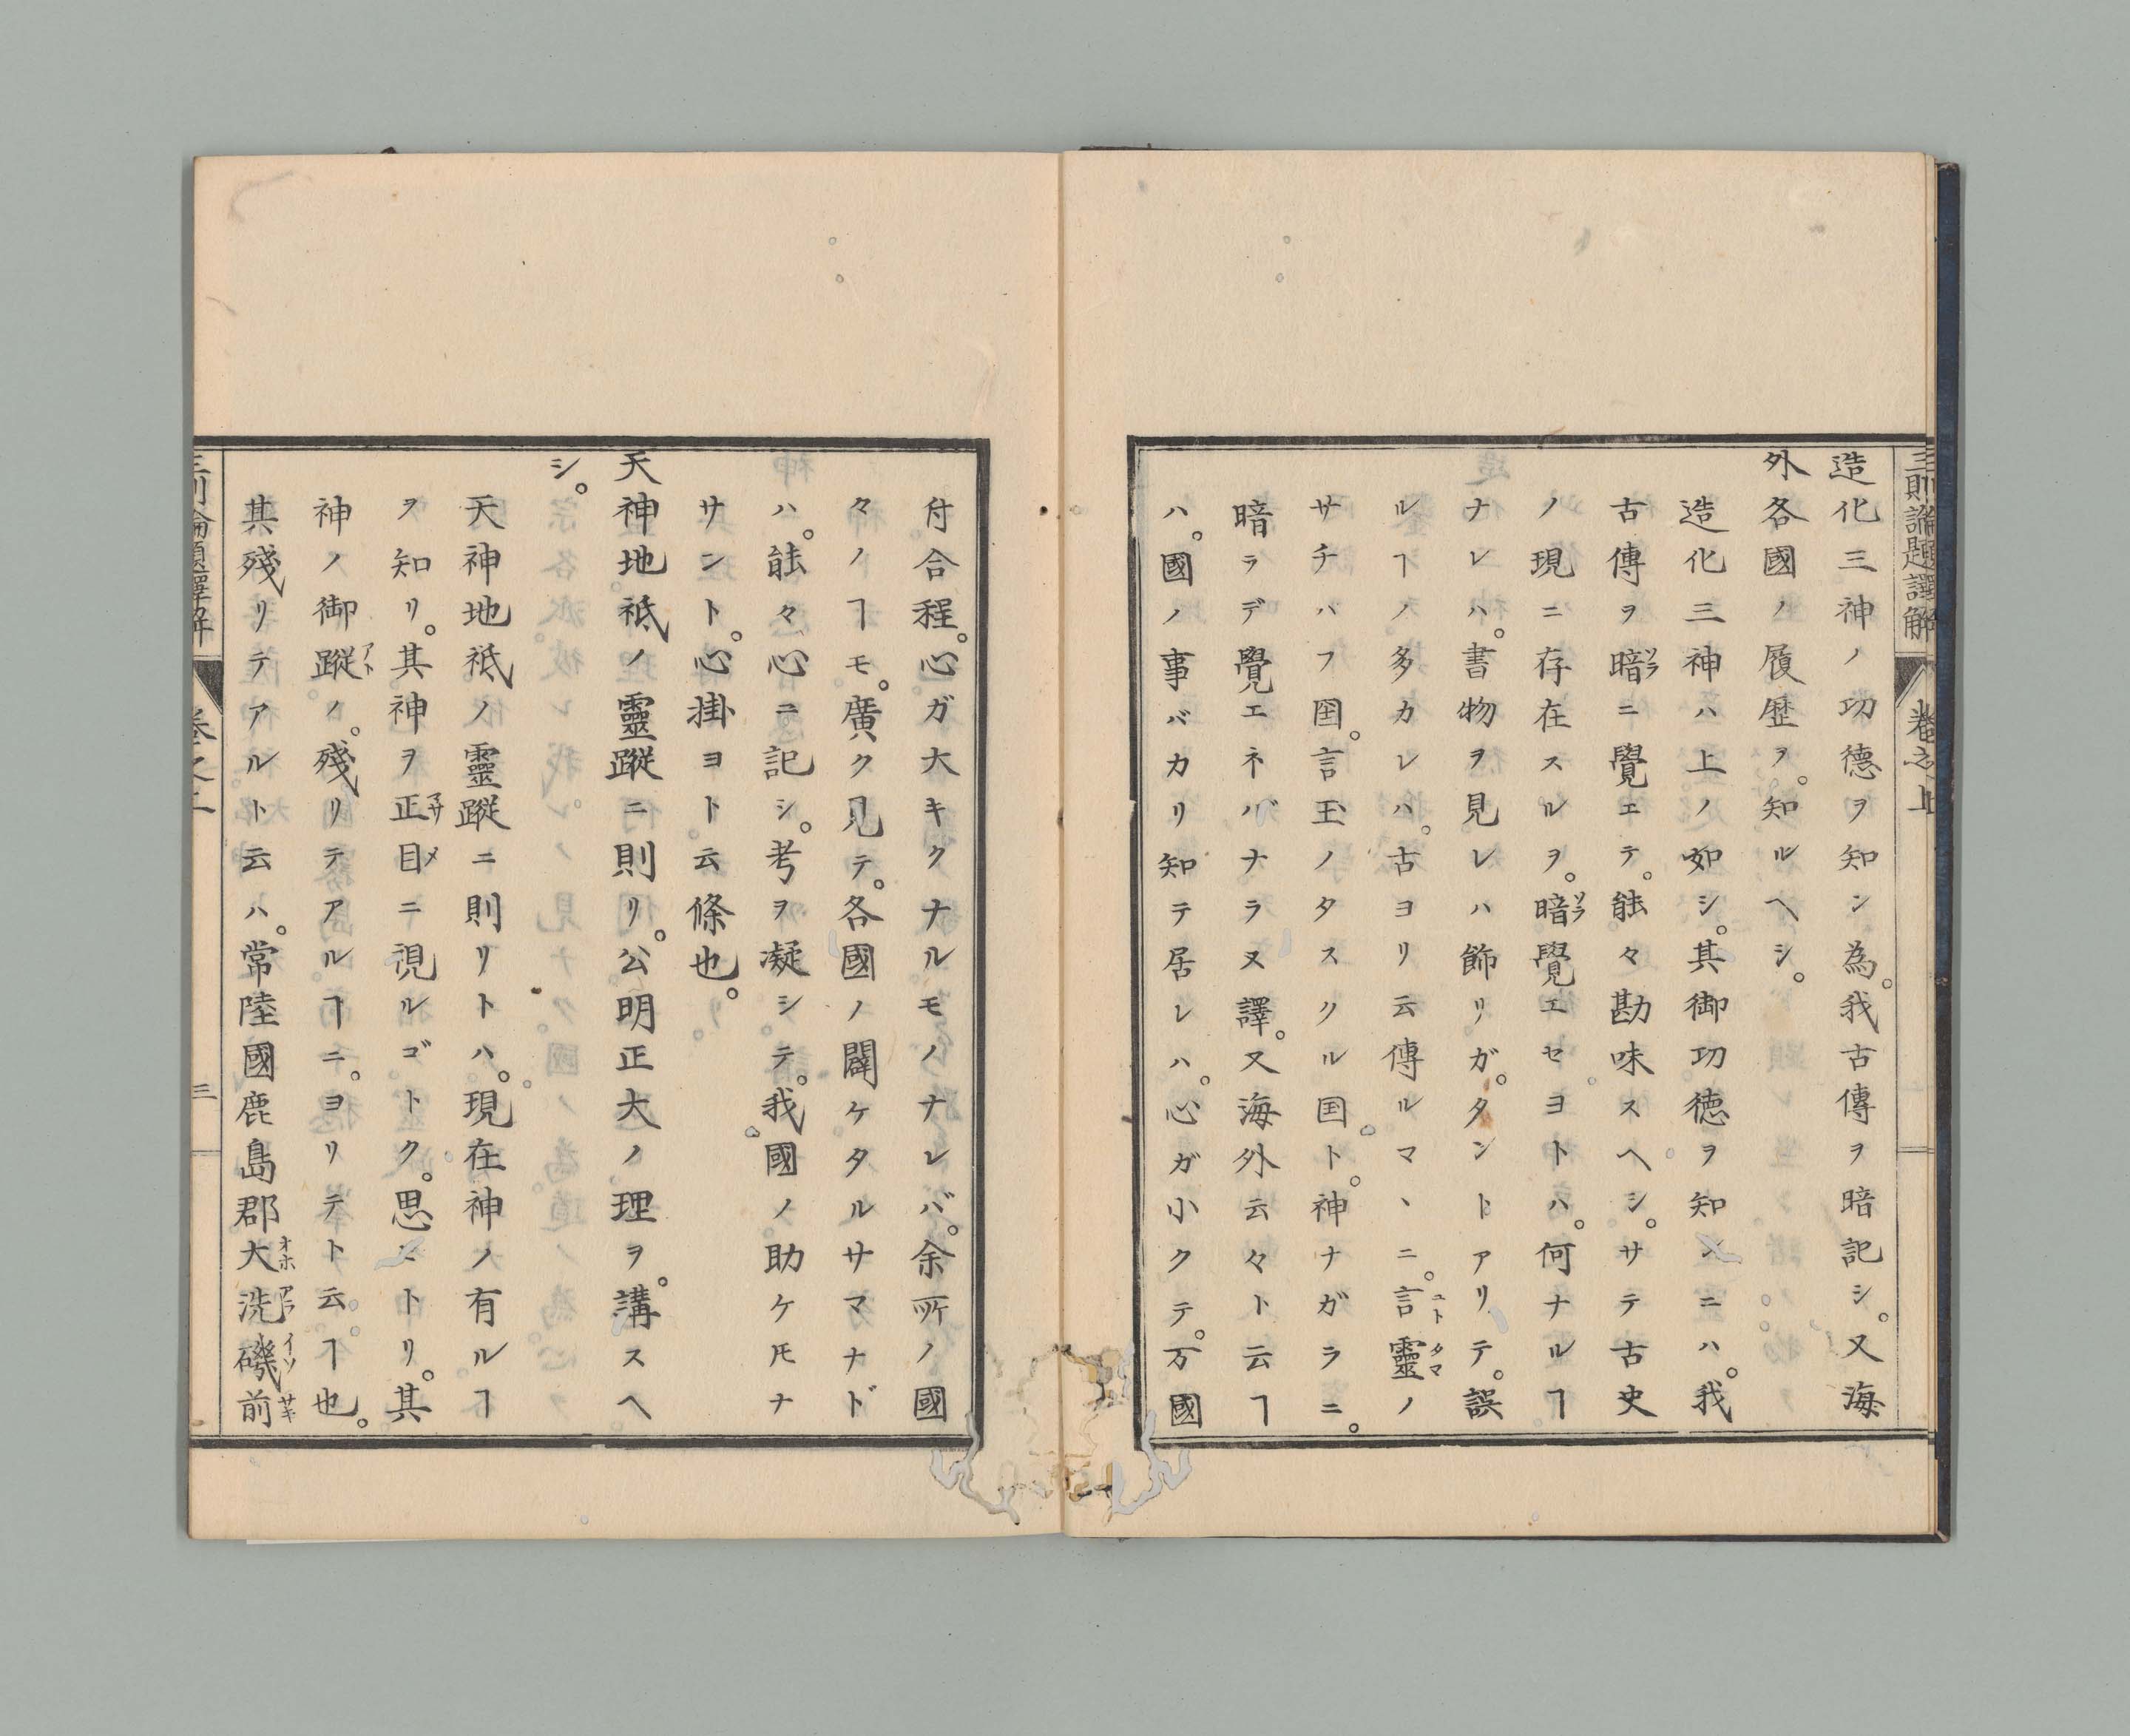 三則論題譯解 卷之上
造化三神ノ功德ヲ知ン為。我古傳ヲ暗記シ。又海
外各國ノ履歴ヲ。知ルヘシ。
造化三神ハ上ノ如シ。其御功徳ヲ知ンニハ。我
古傳ヲ暗ソラニ覺エテ。能々勘味スヘシ。サテ古史
ノ現ニ存在スルヲ。暗ソラ覺エセヨトハ。何ナルヿ
ナレハ。書物ヲ見レハ飾リガ。タントアリテ。誤
ルヿノ多カレハ。古ヨリ云傳ルマヽニ。言霊コトタマノ
サチハフ国。言玉ノタスクル国ト。神ナガラニ。
暗ラデ覺エネバナラヌ譯。又海外云々ト云ヿ
ハ。國ノ事バカリ知テ居レハ。心ガ小クテ。万國
付合程。心ガ大キクナルモノナレバ。余所ノ國
々ノヿモ。廣ク見テ。各國ノ闢ケタルサマナド
ハ。能々心ニ記シ。考ヲ凝シテ。我國ノ助ケモナ
サント。心掛ヨト云條也。
天神地祇ノ靈蹤ニ則リ。公明正大ノ理ヲ。講スヘ
シ。
天神地祇ノ靈蹤ニ則リトハ。現在神ノ有ルヿ
ヲ知リ。其神ヲ正マサ目メニ視ルゴトク。思ヒトリ。其
神ノ御蹤アトノ。殘リテアルヿニ。ヨリテト云ヿ也。
其殘リテアルト云ハ。常陸國鹿島郡大オホ洗アラヒ磯イソ前サキ
三則論題譯解 卷之上 三